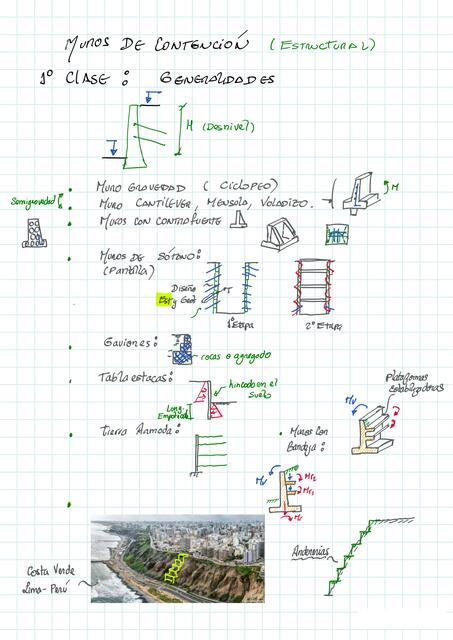 MUROS DE CONTENCIÓN (ESTRUCTURAL)
1º CLASE: GENERALIDADES
H (Desnivel)
MURO GRAVEDAD (CICLOPEO)
Semigravedad
MURO CANTILEVER, MÉNSULA, VOLADIZO.
M
MUROS CON CONTRAFUERTE
MUROS DE SÓTANO:
(Pantalla)
Diseño
Est y Geot
T
1ºEtapa
2º Etapa
Gaviones:
rocas o agregado
Tabla estacas:
hincado en el
suelo
Long.
Empotrada
Plataformas
Estabilizadoras
Mv
Tierra Armada:
Muros con
Bandeja:
Mv
Mr2
Mr1
Mr
Costa Verde
Lima-Perú
Andenerias